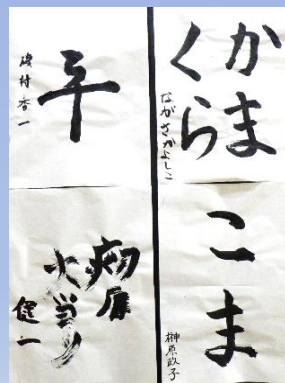 かま
くら
ながさかよしこ
こま
榊原政子
平
磯村香一
大当り
健一